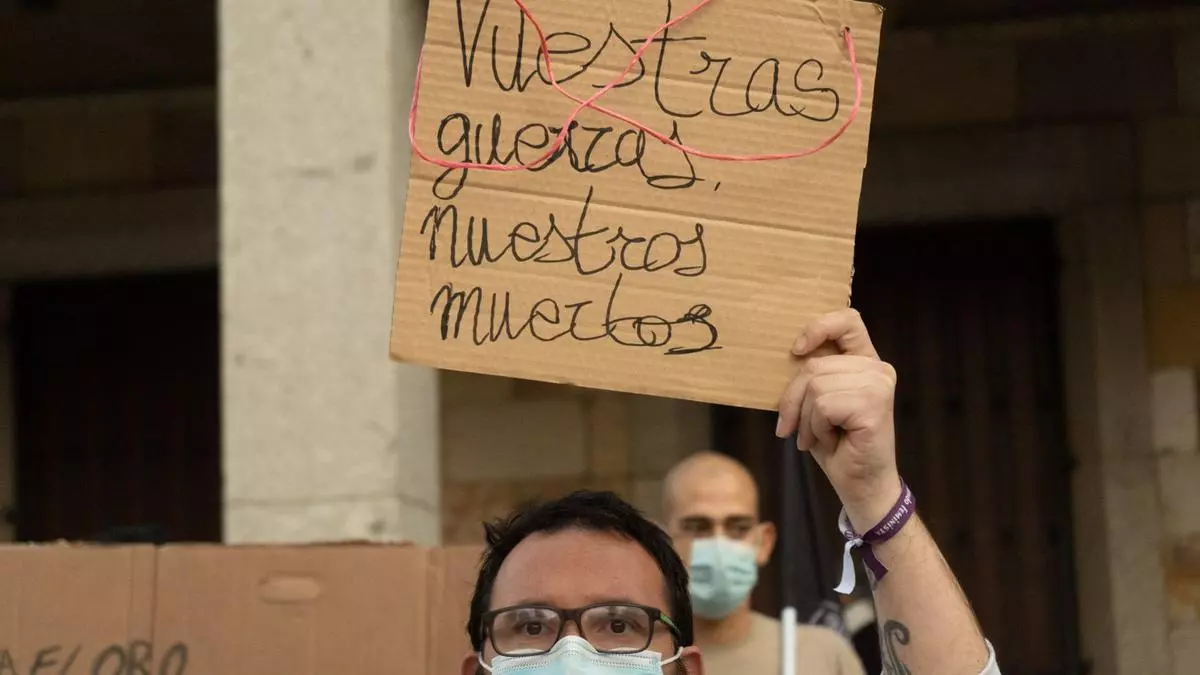 Vuestras
guerras,
nuestros
muertos
feminista